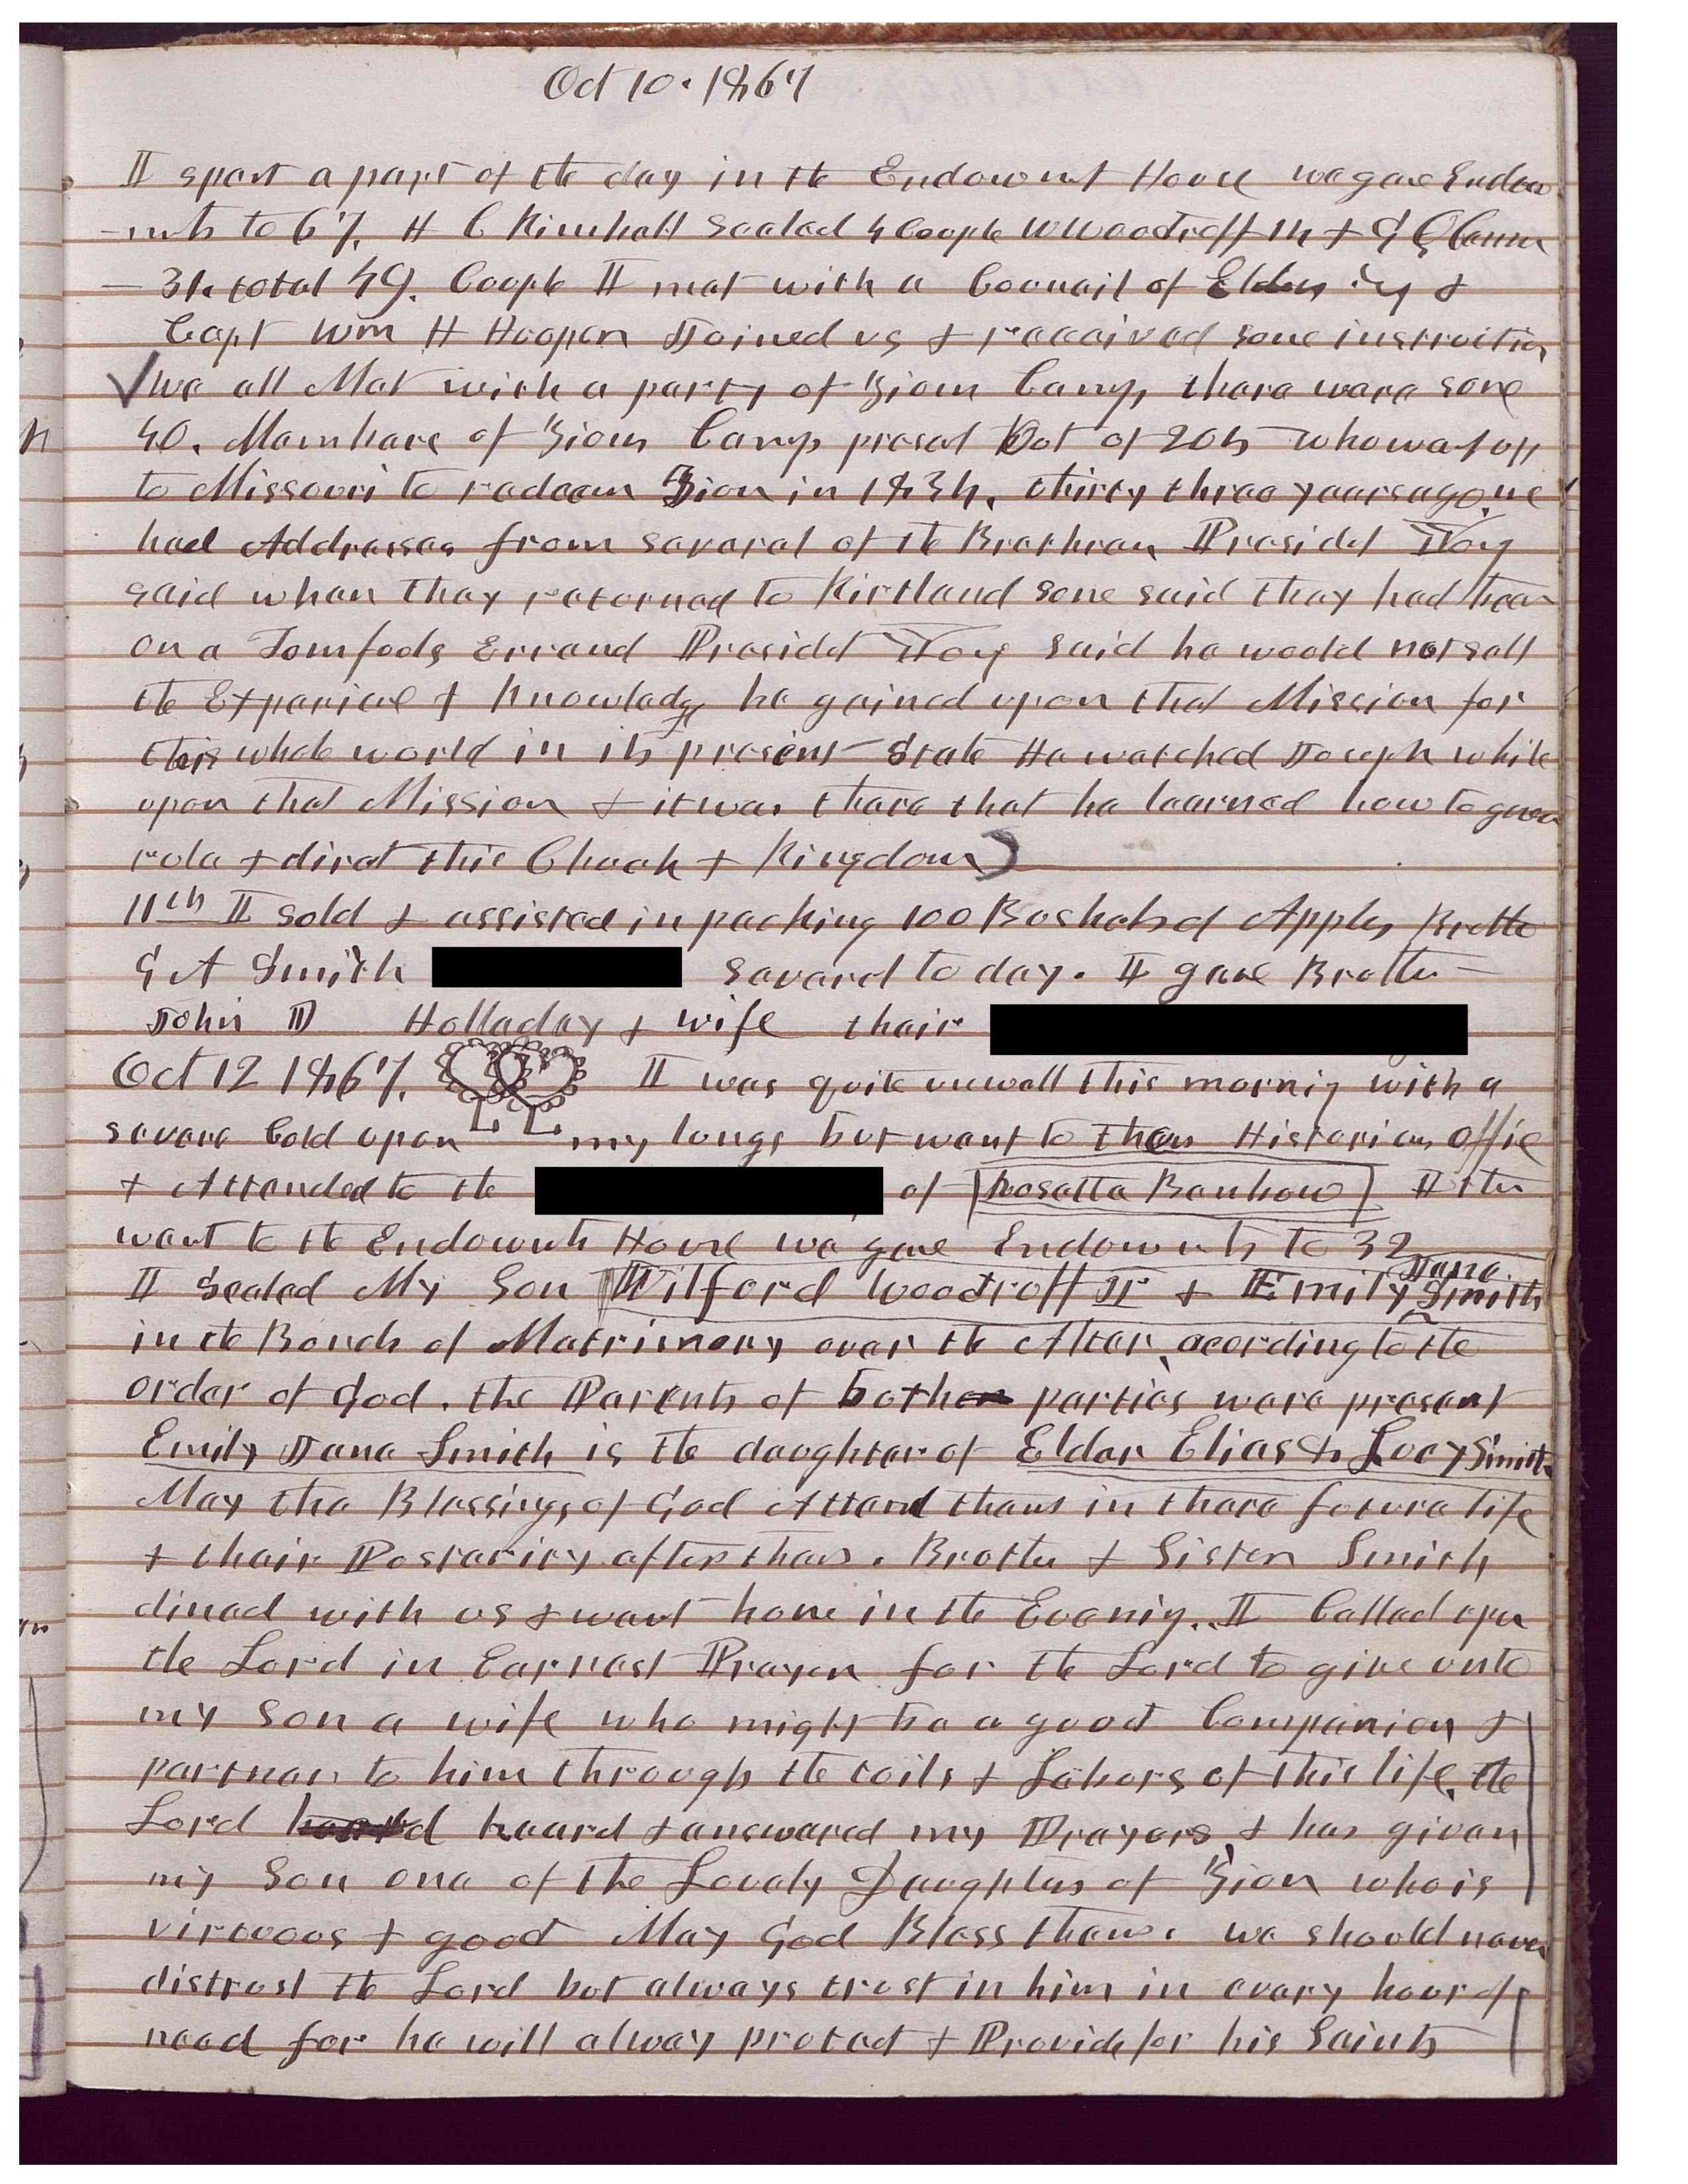 Oct 10. 1867
I spent a part of the day in the Endowmt House we gave Endow
-mts to 67. H C Kimball Sealed 4 Couple W Woodruff 14 & G Q Cannon
— 31. total 49. Couple I met with a Council of Elders &
Capt Wm H Hooper Joined us & received some instruction
We all Met with a party of Zions Camp, there were some
40. Members of Zions Camp presnt Out of 205 who went up
to Missouri to redeem Zion in 1834. thirty three years ago. we
had Addresses from several of the Brethren President Young
said when they returned to Kirtland some said they had been
on a Tomfools Errand Presidet Young said he would not sell
the Experience & knowledge he gained upon that Mission for
this whole world in its present State He watched Joseph while
upon that Mission & it was there that he learned how to govern
rule & direct this Church & Kingdom)
11th I sold & assisted in packing 100 Bushels of Apples, Brother
G A Smith severd to day. I gave Brother
John D Holladay & wife their
Oct 12 1867. I was quite unwell this morning with a
severe Cold upon my lungs but went to the Historians office
& Attended to the of Rosetta Banhow I then
went to the Endowmt House we gave Endowmts to 32
I Sealed My Son Wilford Woodruff Jr & Emily Jane Smith
in the Bonds of Matrimony over the Alter, acording to the
order of God. the Parents of both parties were present
Emily Jane Smith is the daughter of Elder Elias & Lucy Smith
May the Blessings of God Attend them in there future life
& their Posterity after them. Brother & Sister Smith
dined with us & went home in the Evening. I Called upon
the Lord in Earnest Prayer for the Lord to give unto
my Son a wife who might be a good Companion &
partner to him through the toils & Labors of this life. the
Lord heard & answered my Prayers, & has given
my Son one of the Lovely Daughters of Zion who is
virtuous & good May God Bless them. we should never
distrust the Lord but always trust in him in every hour of
need for he will alway protect & Provide for his Saints